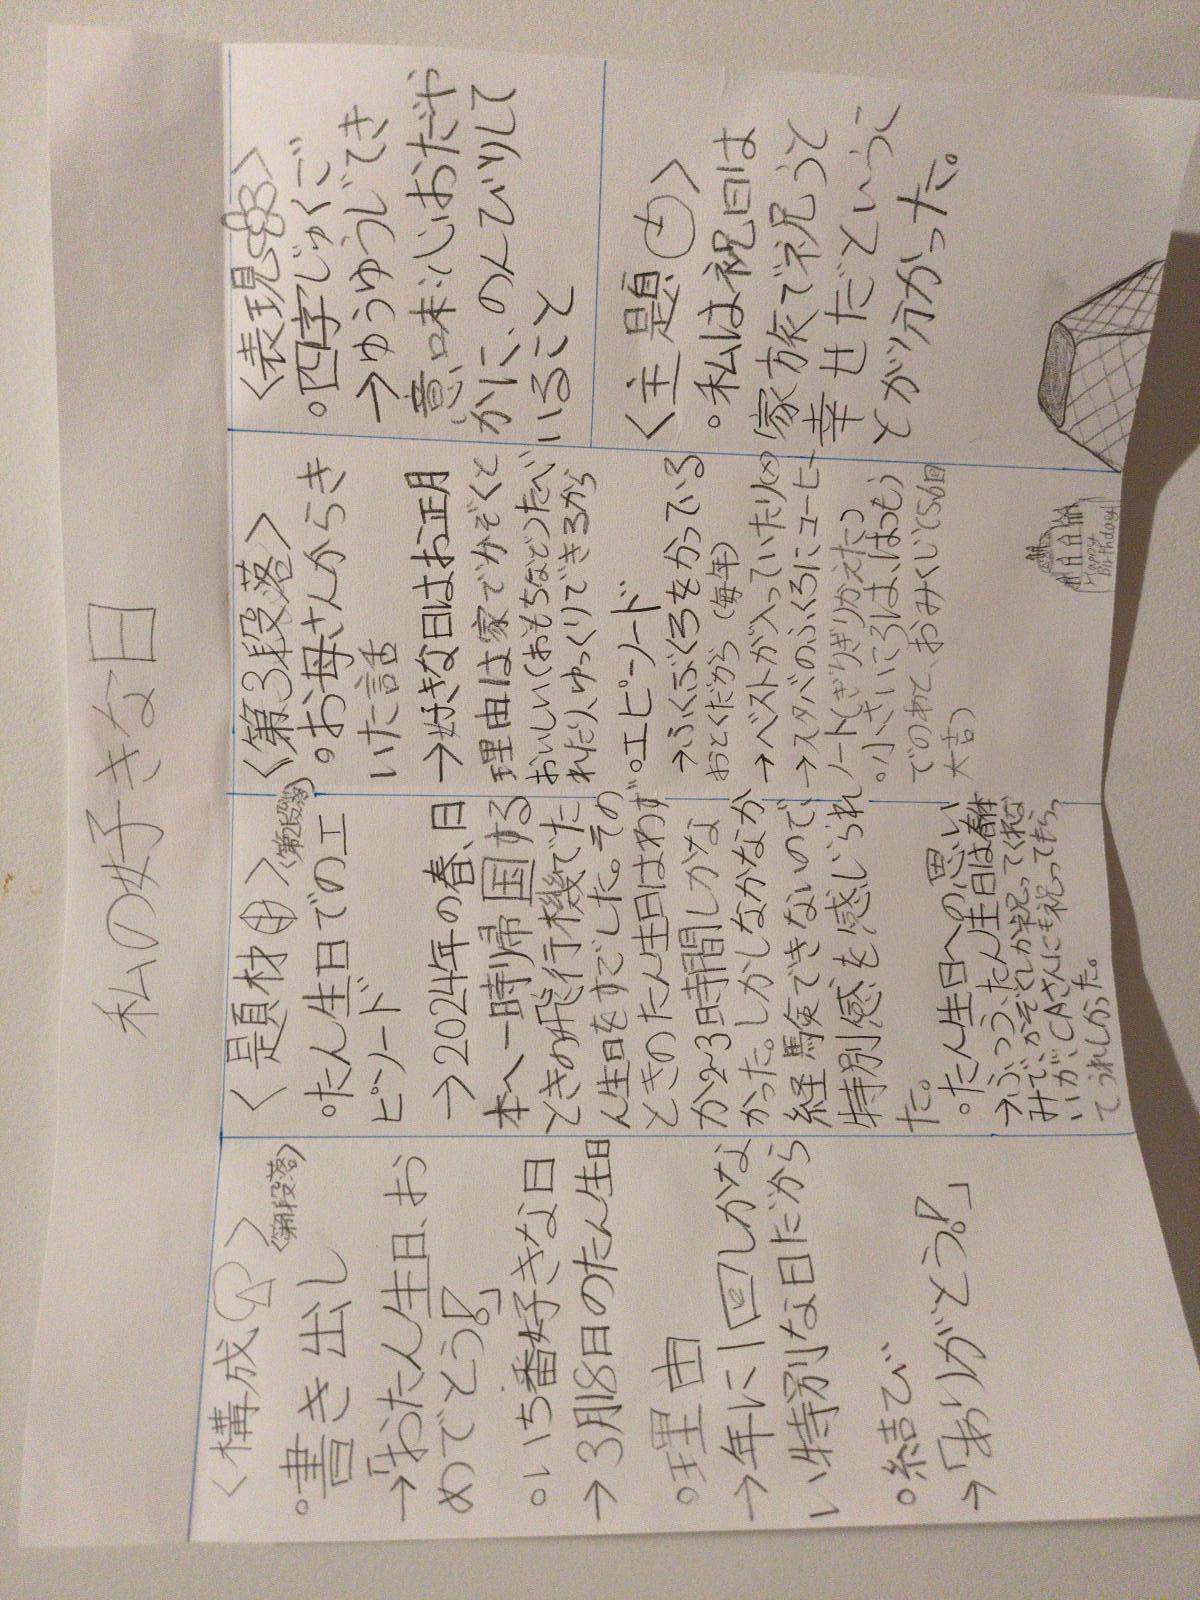 私の好きな日
<構成>
<第1段落>
。書き出し
→「おたん生日、お
めでとう!」
。いち番好きな日
→3月18日のたん生日
。理由
→年に1回しかな
い特別な日だから
。結び
→「ありがとう!」
<題材>
<第2段落>
。たん生日でのエ
ピソード
→2024年の春、日
本へ一時帰国する
ときの飛行機でた
ん生日をすごした。その
ときのたん生日はわず
か2~3時間しかな
かった。しかしなかなか
経験できないので、
特別感を感じられ
た。
。たん生日への思い
→ふつう、たん生日は春休
みで、かぞくしか祝ってくれな
いが、CAさんにも祝ってもらっ
てうれしかった。
<第3段落>
。お母さんからき
いた話
→好きな日はお正月
理由は家でかぞくと
おいしい(おもちなど)たべ
れたり、ゆっくりできるから
。エピソード
→ふくぶくろをかっている
おとくだから(毎年)
→ベストが入っていたり∞
→スタバのふくろにコーヒー
ノート(ぎりぎりかえた)
。小さいころは、はつも
うでのあと、おみくじ(56回
大吉)
Happy
Birthday!
<表現>
。四字じゅくご
→ゆうゆうじてき
意味:心おだや
かに、のんびりして
いること
<主題>
。私は祝日は
家族で祝うって
幸せだということ
とが分かった。